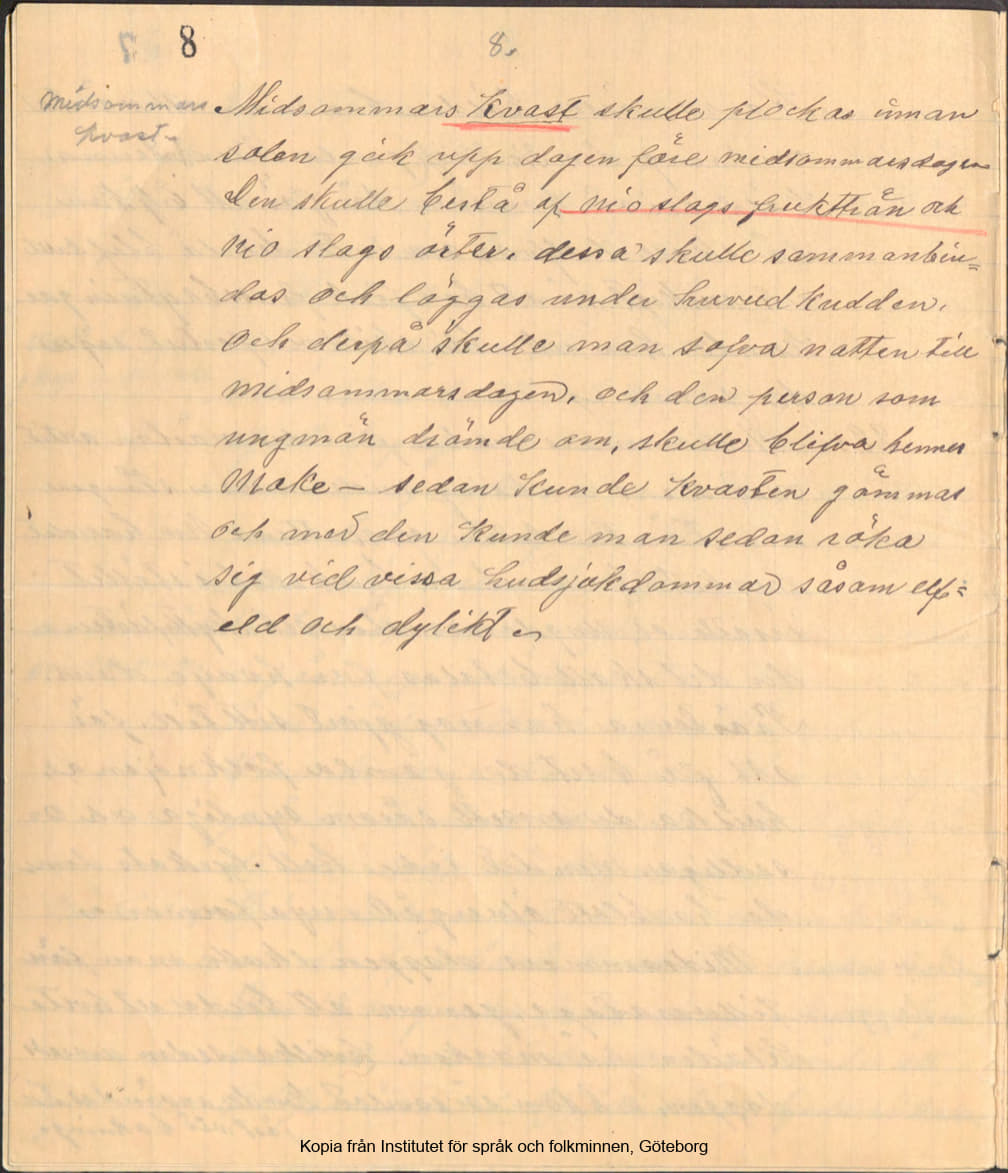 8
8.
Midsommars
kvast
Midsommars Kvast skulle plockas innan
solen gick upp dagen före midsommarsdagen
Den skulle bestå af nio slags fruktträn och
nio slags örter. dessa skulle sammanbin=
das och läggas under huvudkudden.
Och derpå skulle man sofva natten till
midsommarsdagen, och den person som
ungmön drömde om, skulle blifva hennes
Make — sedan kunde kvasten gömmas
och med den kunde man sedan röka
sig vid vissa hudsjukdommar såsom elf=
eld och dylikt
Kopia från Institutet för språk och folkminnen, Göteborg